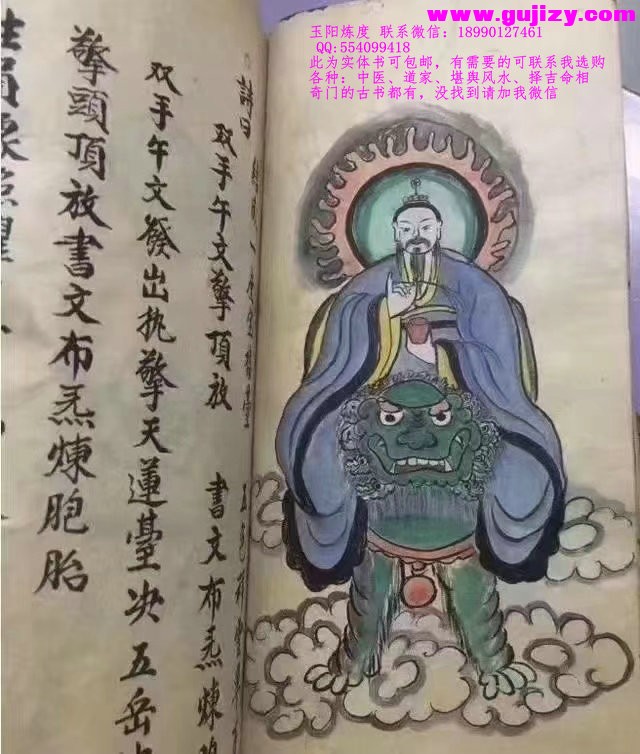 www.gujizy.com
玉阳炼度 联系微信：18990127461
QQ:554099418
此为实体书可包邮，有需要的可联系我选购
各种：中医、道家、堪舆风水、择吉命相
奇门的古书都有，没找到请加我微信
詩曰
双手午文擎頂放 書文布炁煉
双手午文發出执擎天蓮臺决五岳
擎頭頂放書文布炁煉胞胎